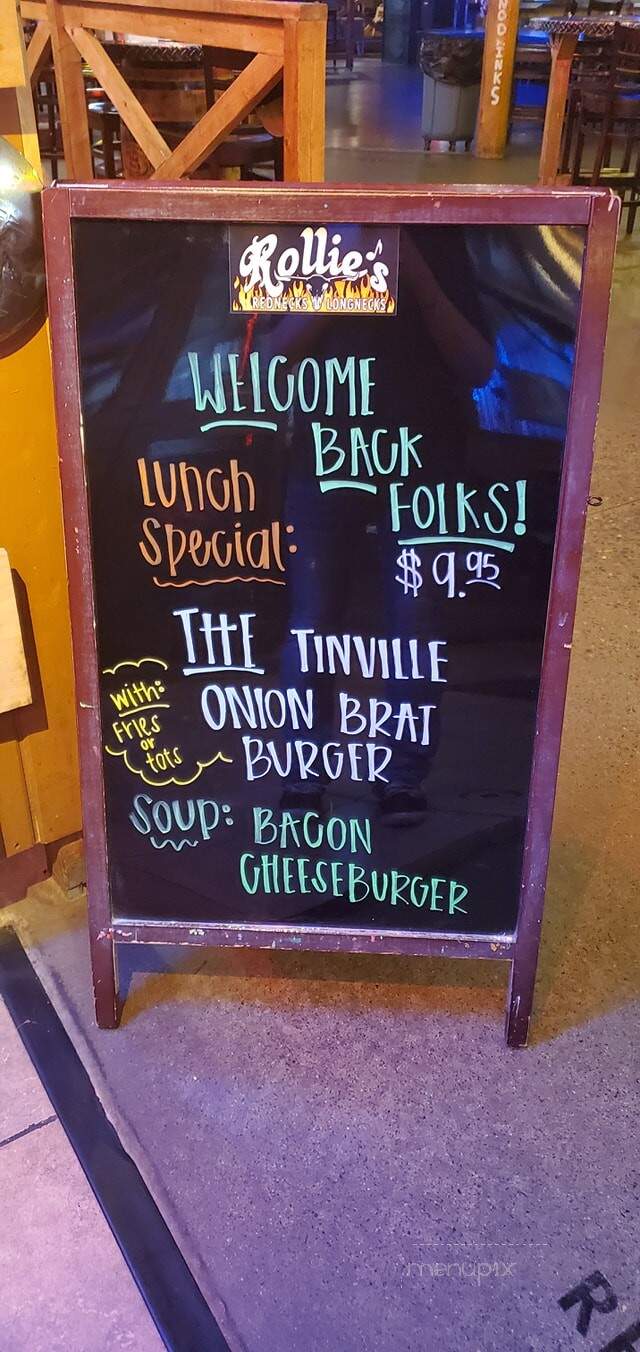 NO DRINKS
Rollie's
REDNECKS 'N' LONGNECKS
WELCOME
BACK
FOLKS!
Lunch
Special:
$9.95
THE TINVILLE
ONION BRAT
BURGER
with:
Fries
or
tots
Soup: BACON
CHEESEBURGER
menupix